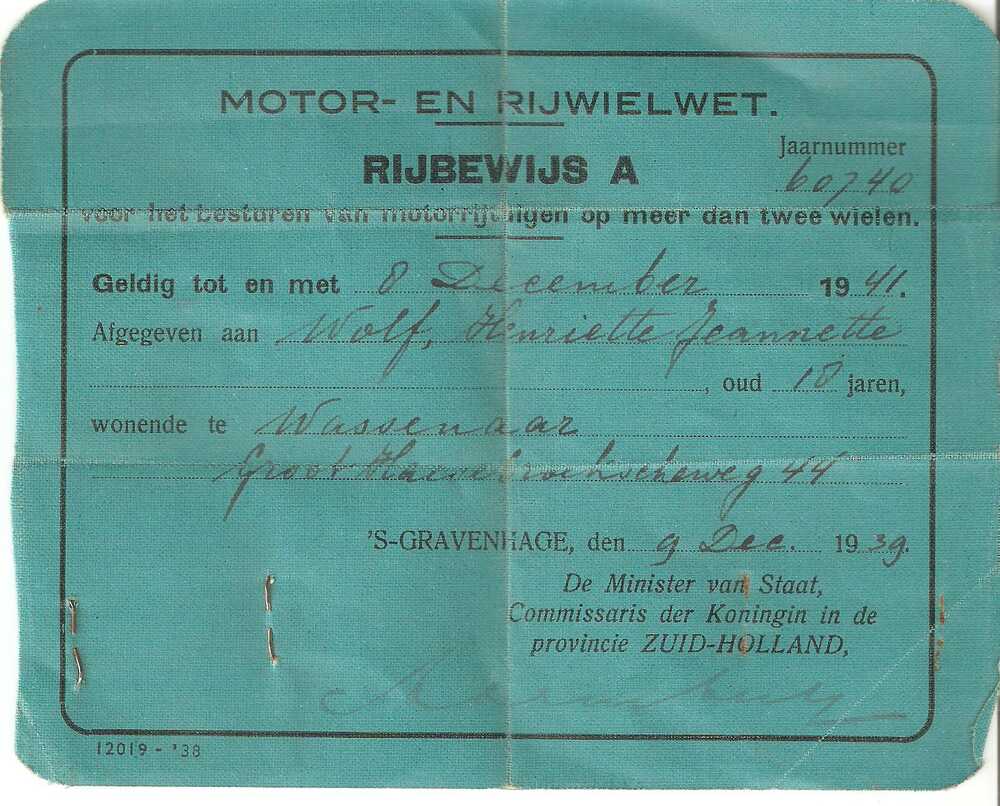 MOTOR- EN RIJWIELWET.
Jaarnummer
RIJBEWIJS A
60740
voor het besturen van motorrijtuigen op meer dan twee wielen.
Geldig tot en met 8 December 1941.
Afgegeven aan Wolf, Henriette Jeannette
, oud 18 jaren,
wonende te Wassenaar
Groot Haesebroekscheweg 44
'S-GRAVENHAGE, den 9 Dec. 1939.
De Minister van Staat,
Commissaris der Koningin in de
provincie ZUID-HOLLAND,
12019 - '38